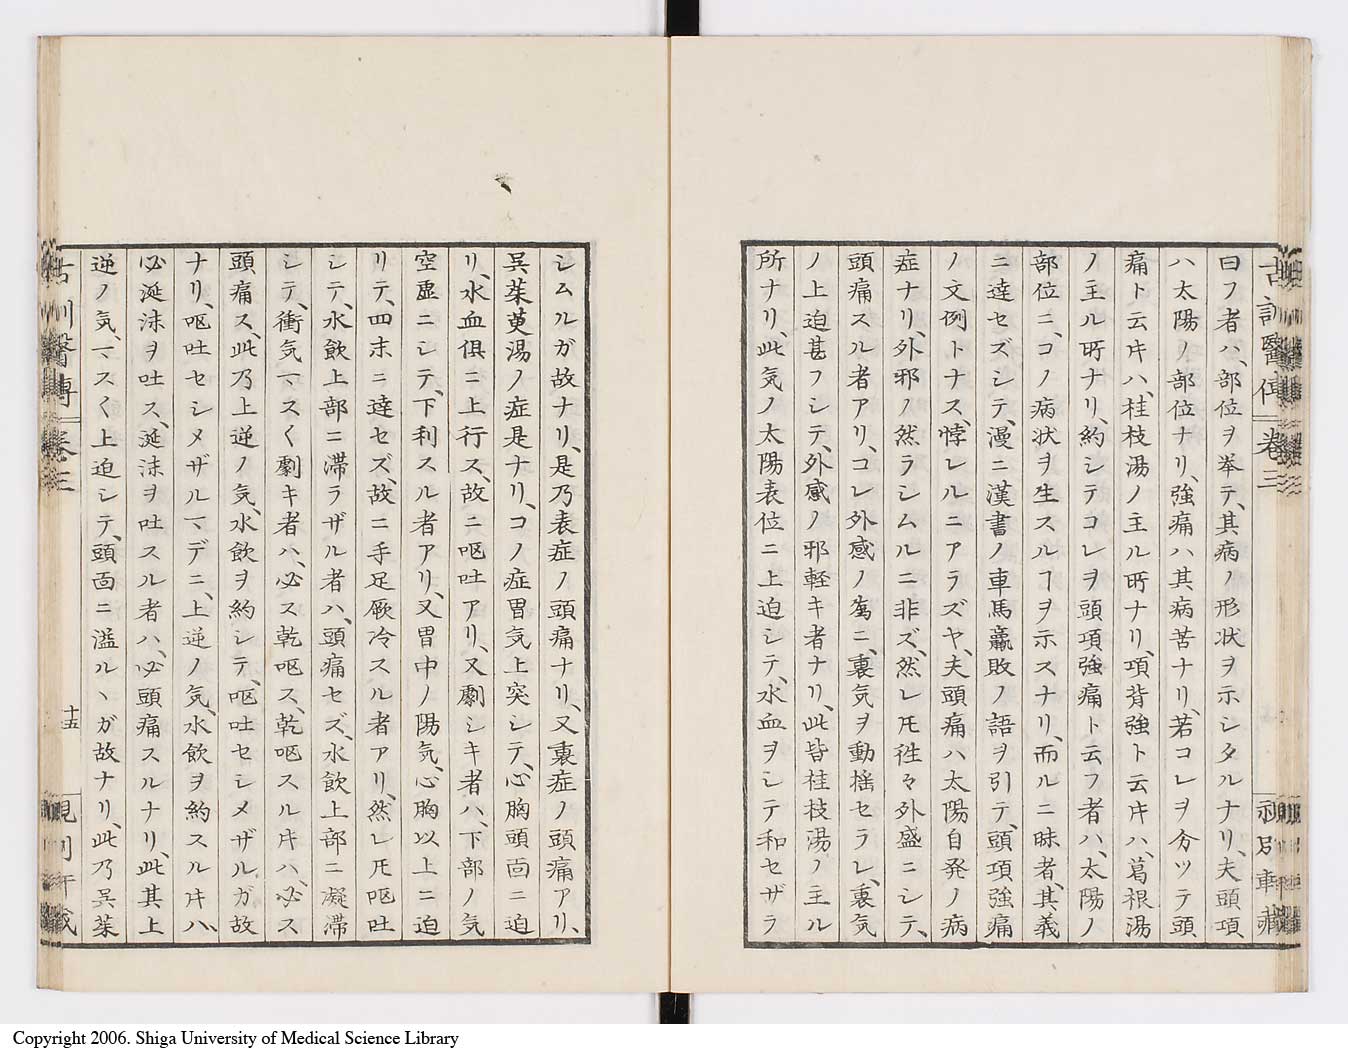 古訓醫傳 卷三
曰フ者ハ、部位ヲ挙テ、其病ノ形状ヲ示シタルナリ、夫頭項
ハ太陽ノ部位ナリ、強痛ハ其病苦ナリ、若コレヲ分ツテ頭
痛ト云片ハ、桂枝湯ノ主ル所ナリ、項背強ト云片ハ、葛根湯
ノ主ル所ナリ、約シテコレヲ頭項強痛ト云フ者ハ、太陽ノ
部位ニ、コノ病状ヲ生スルヿヲ示スナリ、而ルニ昧者、其義
ニ達セズシテ、漫ニ漢書ノ車馬羸敗ノ語ヲ引テ、頭項強痛
ノ文例トナス、悖レルニアラズヤ、夫頭痛ハ太陽自発ノ病
症ナリ、外邪ノ然ラシムルニ非ズ、然レ𪜈徃々外盛ニシテ、
頭痛スル者アリ、コレ外感ノ為ニ、裏気ヲ動揺セラレ、裏気
ノ上迫甚フシテ、外感ノ邪軽キ者ナリ、此皆桂枝湯ノ主ル
所ナリ、此気ノ太陽表位ニ上迫シテ、水血ヲシテ和セザラ
シムルガ故ナリ、是乃表症ノ頭痛ナリ、又裏症ノ頭痛アリ、
呉茱萸湯ノ症是ナリ、コノ症胃気上突シテ、心胸頭面ニ迫
リ、水血俱ニ上行ス、故ニ呕吐アリ、又劇シキ者ハ、下部ノ気
空虚ニシテ、下利スル者アリ、又胃中ノ陽気、心胸以上ニ迫
リテ、四末ニ達セズ、故ニ手足厥冷スル者アリ、然レ𪜈呕吐
シテ、水飲上部ニ滞ラザル者ハ、頭痛セズ、水飲上部ニ凝滞
シテ、衝気マスく劇キ者ハ、必ス乾呕ス、乾呕スル片ハ、必ス
頭痛ス、此乃上逆ノ気、水飲ヲ約シテ、呕吐セシメザルガ故
ナリ、呕吐セシメザルマデニ、上逆ノ気、水飲ヲ約スル片ハ、
必涎沫ヲ吐ス、涎沫ヲ吐スル者ハ、必頭痛スルナリ、此其上
逆ノ気、マスく上迫シテ、頭面ニ溢ルヽガ故ナリ、此乃呉茱
古訓醫傳 卷三
十五
Copyright 2006. Shiga University of Medical Science Library